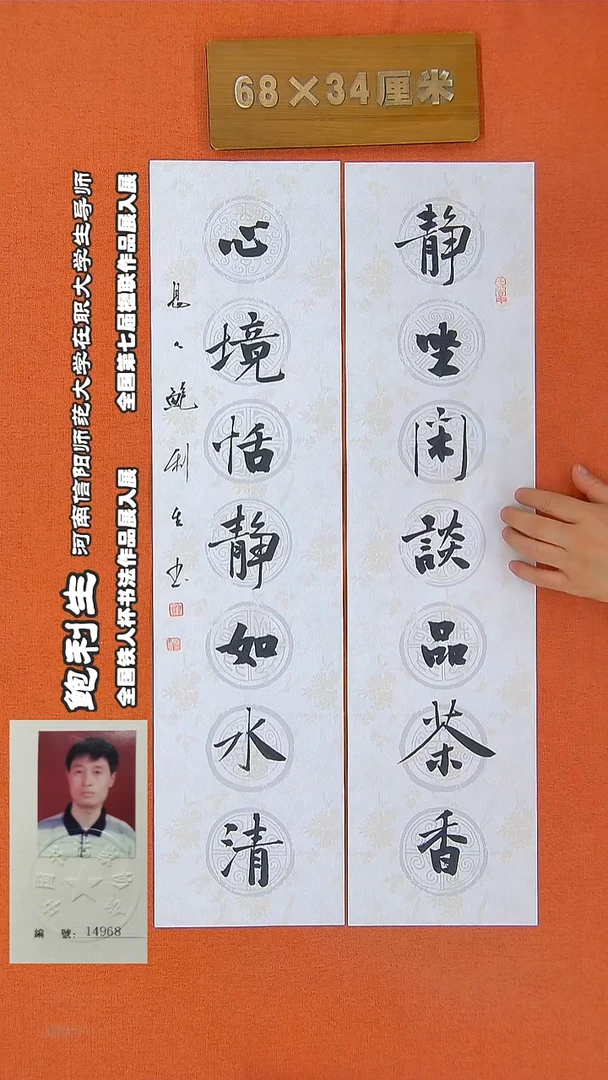 68×34厘米
静坐闲談品茶香
心境恬静如水清
鲍利生书
鲍利生 河南信阳师范大学在职大学生导师
全国铁人杯书法作品展入展 全国第七届楹联作品展入展
編 號: 14968